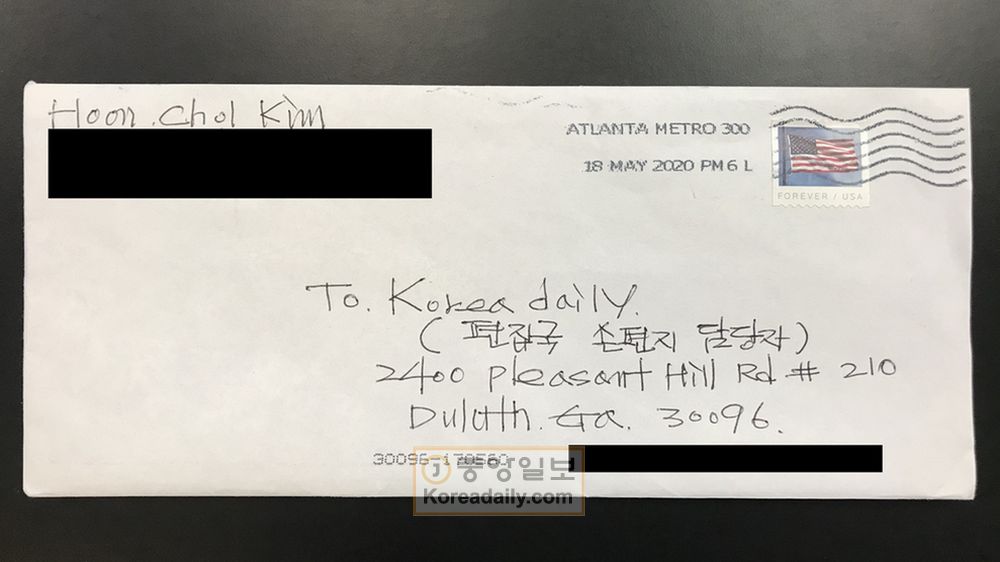 Hoon Chol Kim
ATLANTA METRO 300
18 MAY 2020 PM 6 L
FOREVER / USA
To. Korea daily.
( 편집국 손편지 담당자 )
2400 pleasant Hill Rd # 210
Duluth. Ga. 30096.
30096-170560
중앙일보
Koreadaily.com